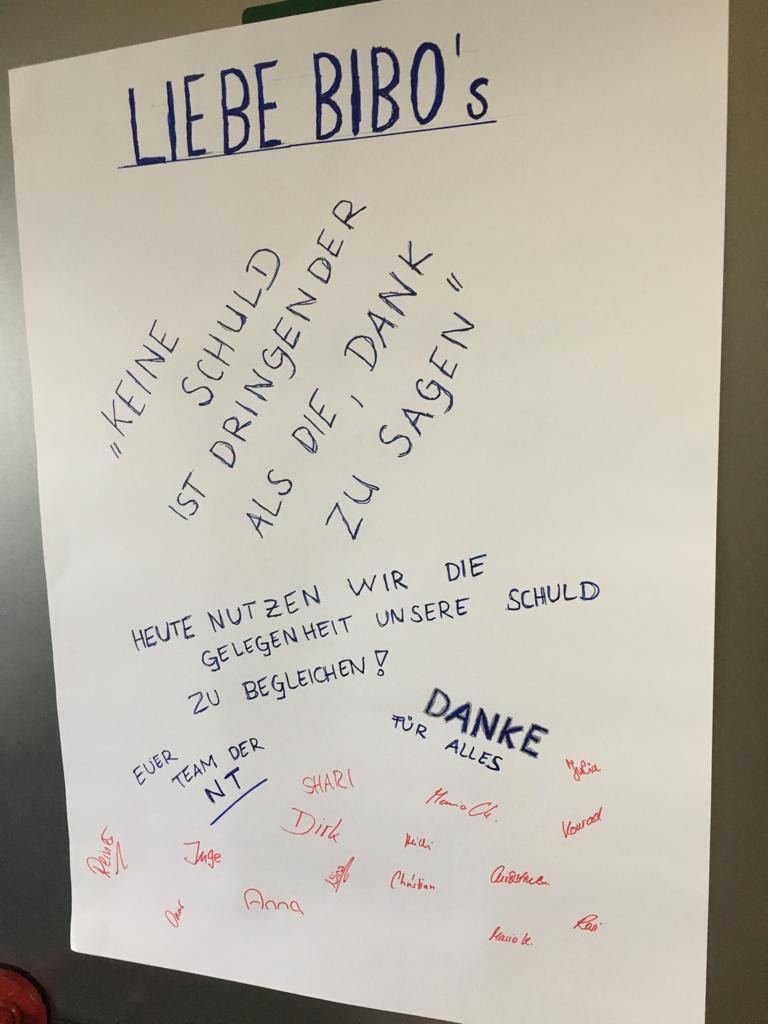 LIEBE BIBO's
„KEINE
SCHULD
IST DRINGENDER
ALS DIE, DANK
ZU SAGEN"
HEUTE NUTZEN WIR DIE
GELEGENHEIT UNSERE SCHULD
ZU BEGLEICHEN!
DANKE
FÜR ALLES
EUER
TEAM DER
NT
SHARI
Julia
Mario Ch.
Dirk
Konrad
Reiner
Inge
Christian
Anna
Mario K.